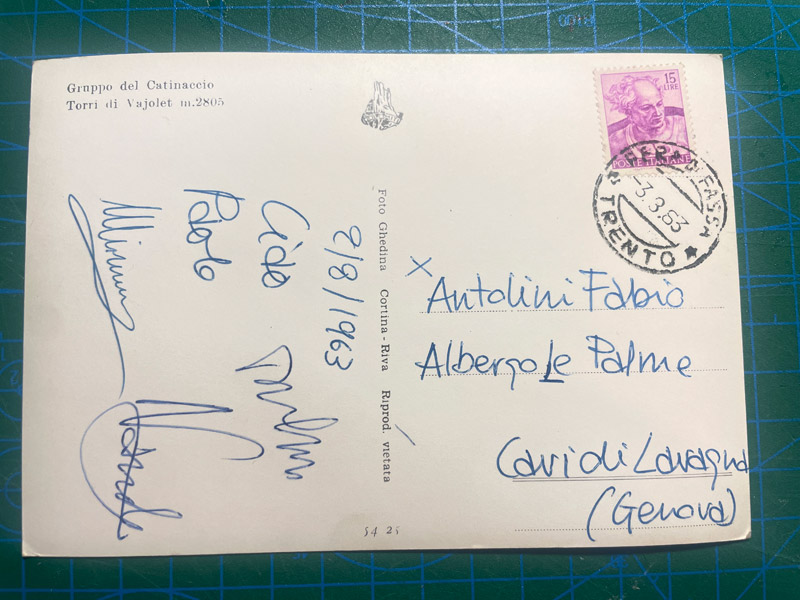 Gruppo del Catinaccio
Torri di Vajolet m.2805
15
LIRE
POSTE ITALIANE
DI FASSA
-3.8.63
TRENTO
Foto Ghedina Cortina - Riva Riprod. vietata
2/8/1963
Paolo
X Antolini Fabio
Albergo Le Palme
Cavi di Lavagna
(Genova)
54 25